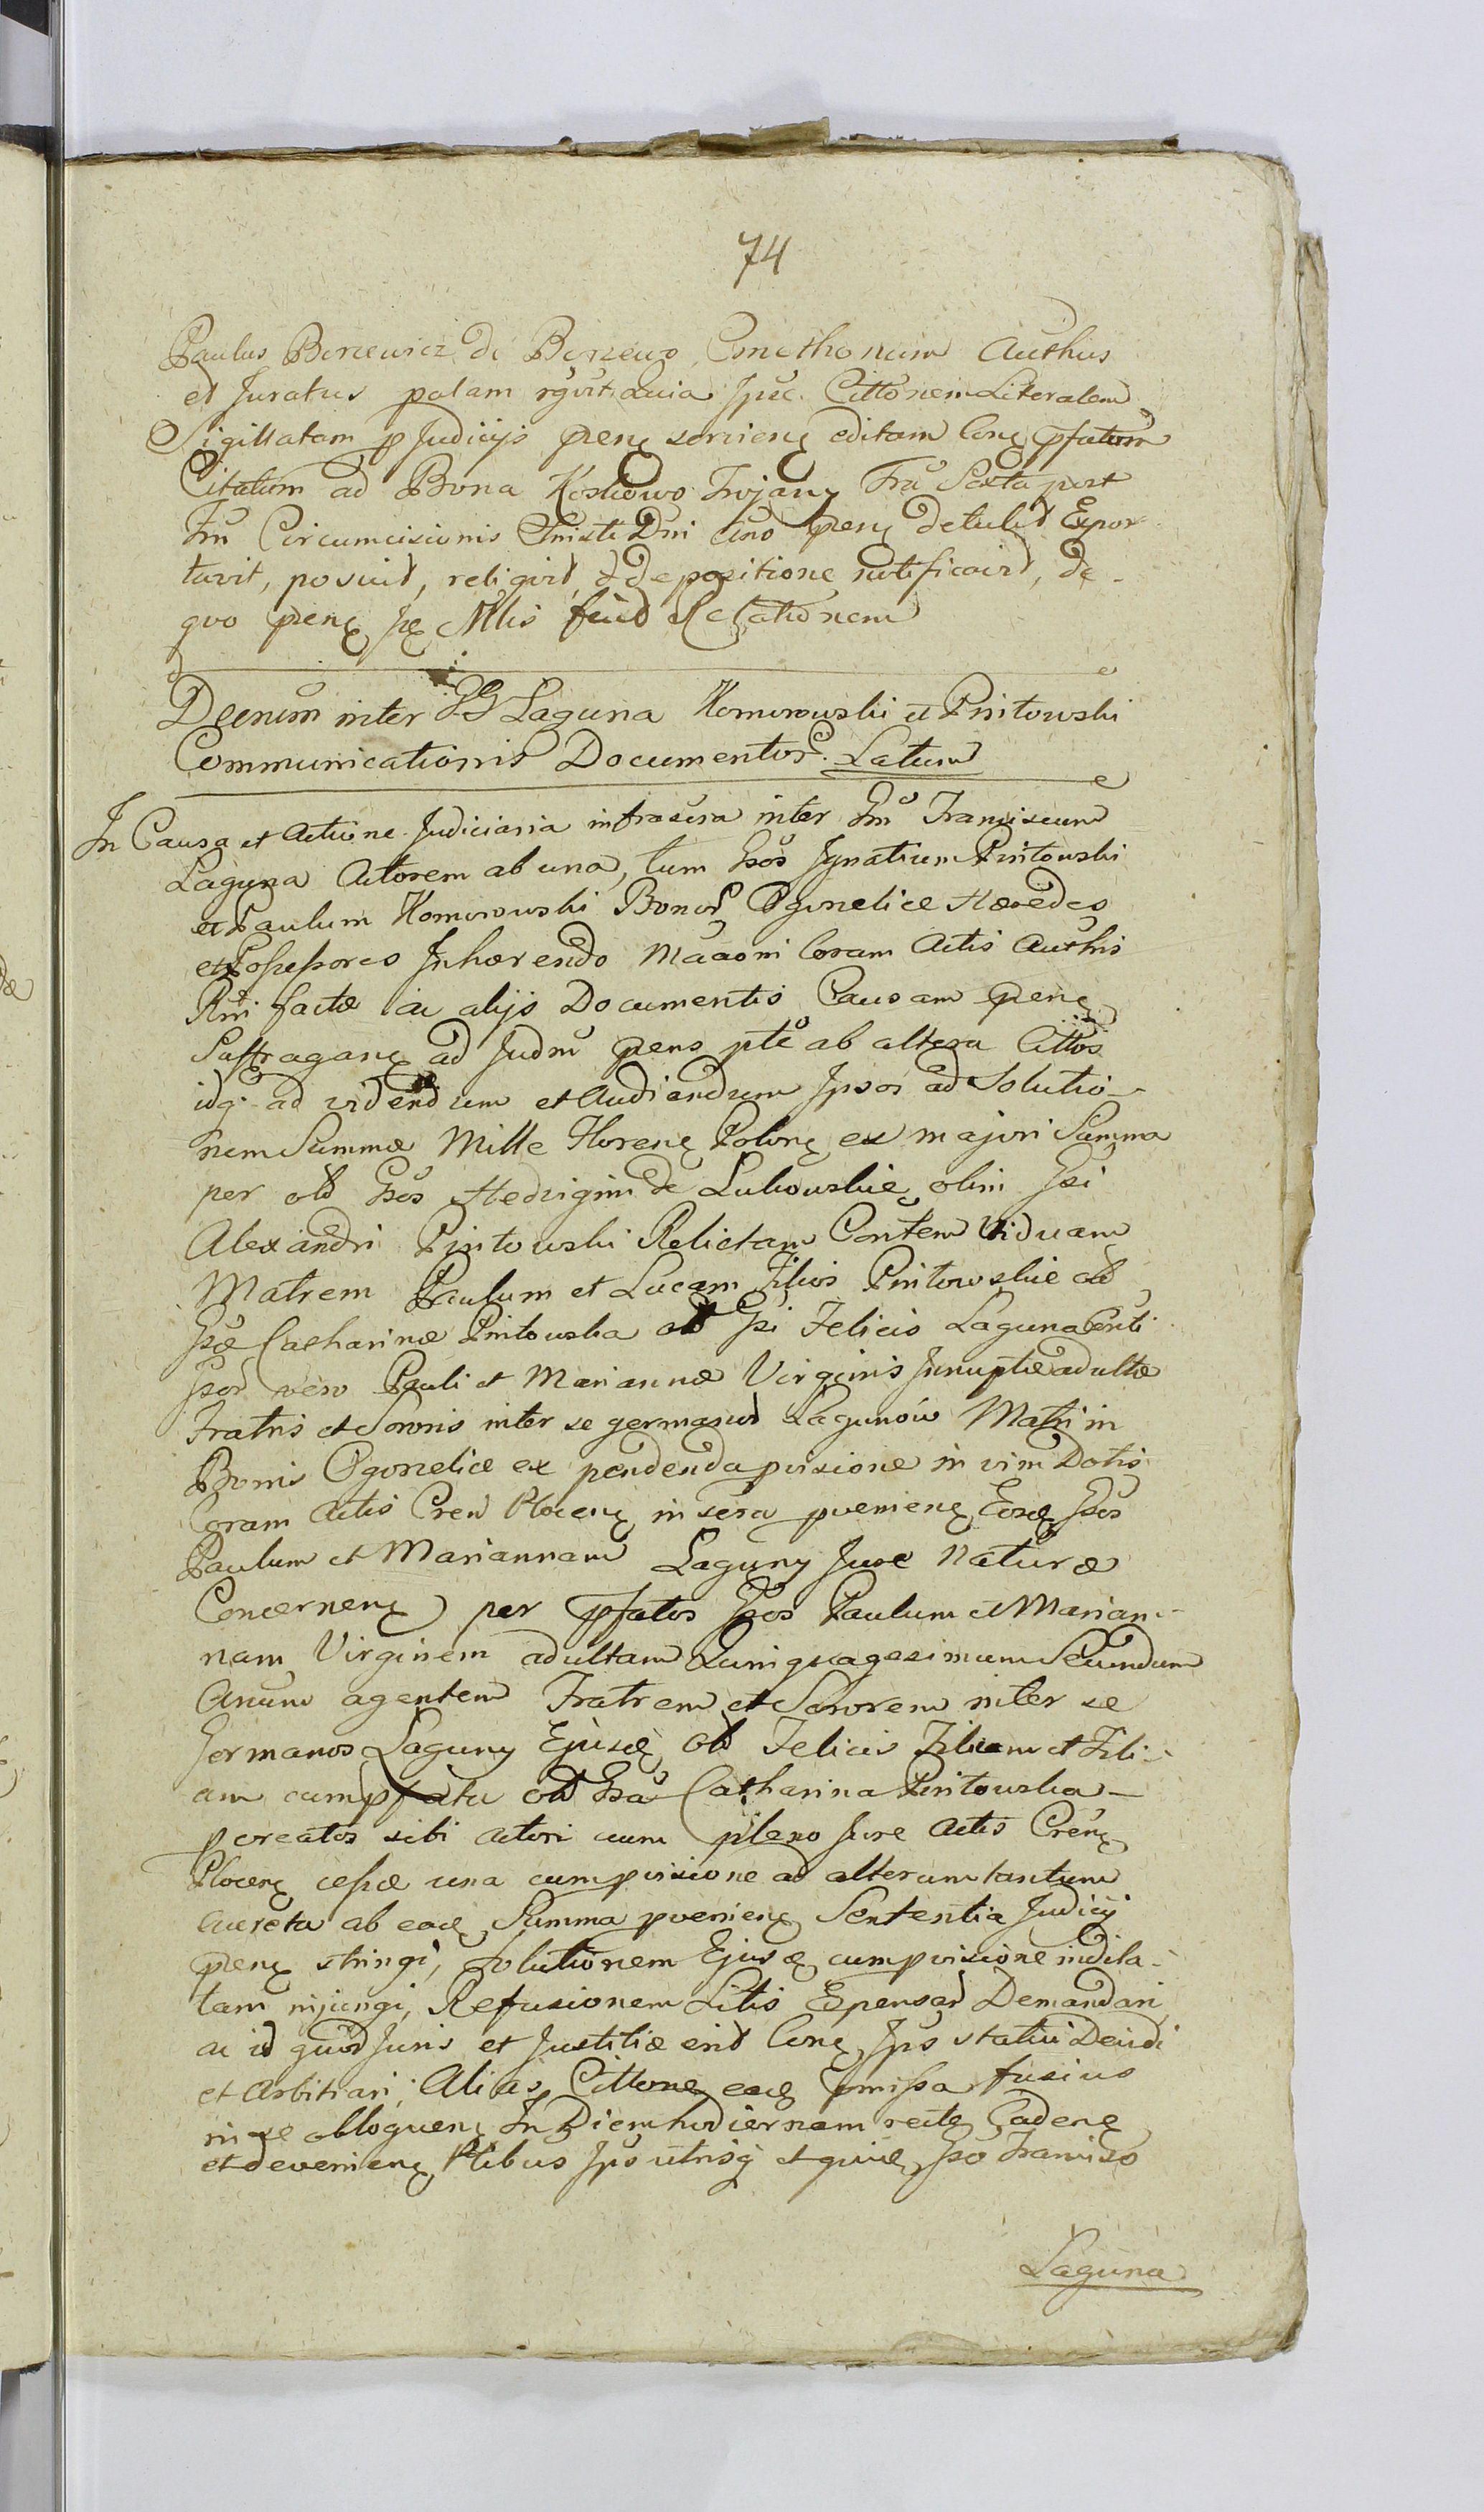 74
Paulus Borcewicz de Borzewo Cmethonum Authus
et Juratus palam rgvit Quia Ipse Cittonem Literalem
Sigillatam p Judicijs pnς servienς editam Conς pfatum
Citatum ad Bona Kosłowo Trojany Fra Sexta post
Fm Circumcisionis Christi Dni Ano pnς detulit Expor-
tavit, posuit, reliqvit, & de positione notificavit, de
quo pnς Relationem
Decrum inter GG Laguna Komorowski et Pniowski
Communicationis Documentor. Latum
In Causa et Actione Judiciaria infrascra inter Gm Franciscum
Laguna Actorem ab una, tum Gsos Ignatium Pintowski
et Paulum Komorowski Bonor Ogonelice Hæredes
et Possessores Inhærendo Coram Actis Authis
factæ ac alijs Documentis Causam pnς
Suffraganς ad Judm pns pte ab altera Cittos
idq. ad videndum et Audiendum Ipsos ad Solutio-
nem Summæ Mille Florenς Polonς ex majori Summa
per olb Gsos Hedvigim de Lukowskie olim Gsi
Alexandri Pintowski Relictam Contem Viduam
Matrem Paulum et Lucam Filios Pintowskie olb
Gsæ Catharinæ Pintowska olb Gsi Felicis Laguna Conti
Gsor vero Pauli et Mariannæ Virginis Innuptæ adultæ
Fratris et Sororis inter se germanor Lagunów Matri in
Bonis Ogonelice ex pendenda pvisione in vim Dotis
Coram Actis Cren Plocenς inscra pvenienς Eosdς Gsos
Paulum et Mariannam Laguny Jure Naturæ
Concernenς per pfatos Gsos Paulum et Marian-
nam Virginem adultam Quinquagesimum Secundum
Anum agentem Fratrem et Sororem inter se
Germanos Laguny Ejusdς olb Felicis Filium et Fili-
am cum pfata olb Gsa Catharina Pintowska
pcreatos sibi Actori cum pleno Jure Actis Crenς
Plocenς cessæ una cum pvisione ad alterum tantum
Accreta ab eadς Summa pvenienς Sententia Judicij
pnς stringi, Solutionem Ejusdς cum pvisione indila-
tam injungi, Refusionem Litis Expensar Demandari
ac id quod Juris et Justitiæ erit Conς Ips statui Decidi
et Arbitrari, Alias Cittone eadς pmissa fusius
in se obloquenς In Diem hodiernam recte Cadenς
et devenienς Ptibus Ips utrisq et quidς Gso Franciso
Laguna